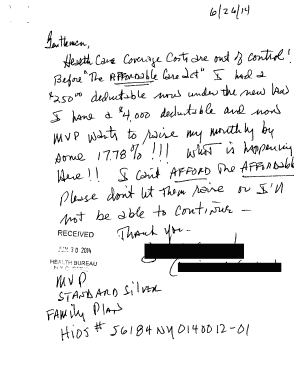 6/26/14
Gentlemen,
Health Care Coverage Costs are out of control!
Before "The AFFORDABLE Care Act" I had a
$250.00 deductable now under the new law
I have a $4,000 deductable and now
MVP wants to raise my monthly by
some 17.78%!!! What is happening
Here!! I can't AFFORD the AFFORDABLE
Please don't let them raise or I'll
not be able to continue –
Thank you –
RECEIVED
JUN 30 2014
HEALTH BUREAU
MVP
STANDARD SILVER
FAMILY PLAN
HIOS # 56184NY0140012-01